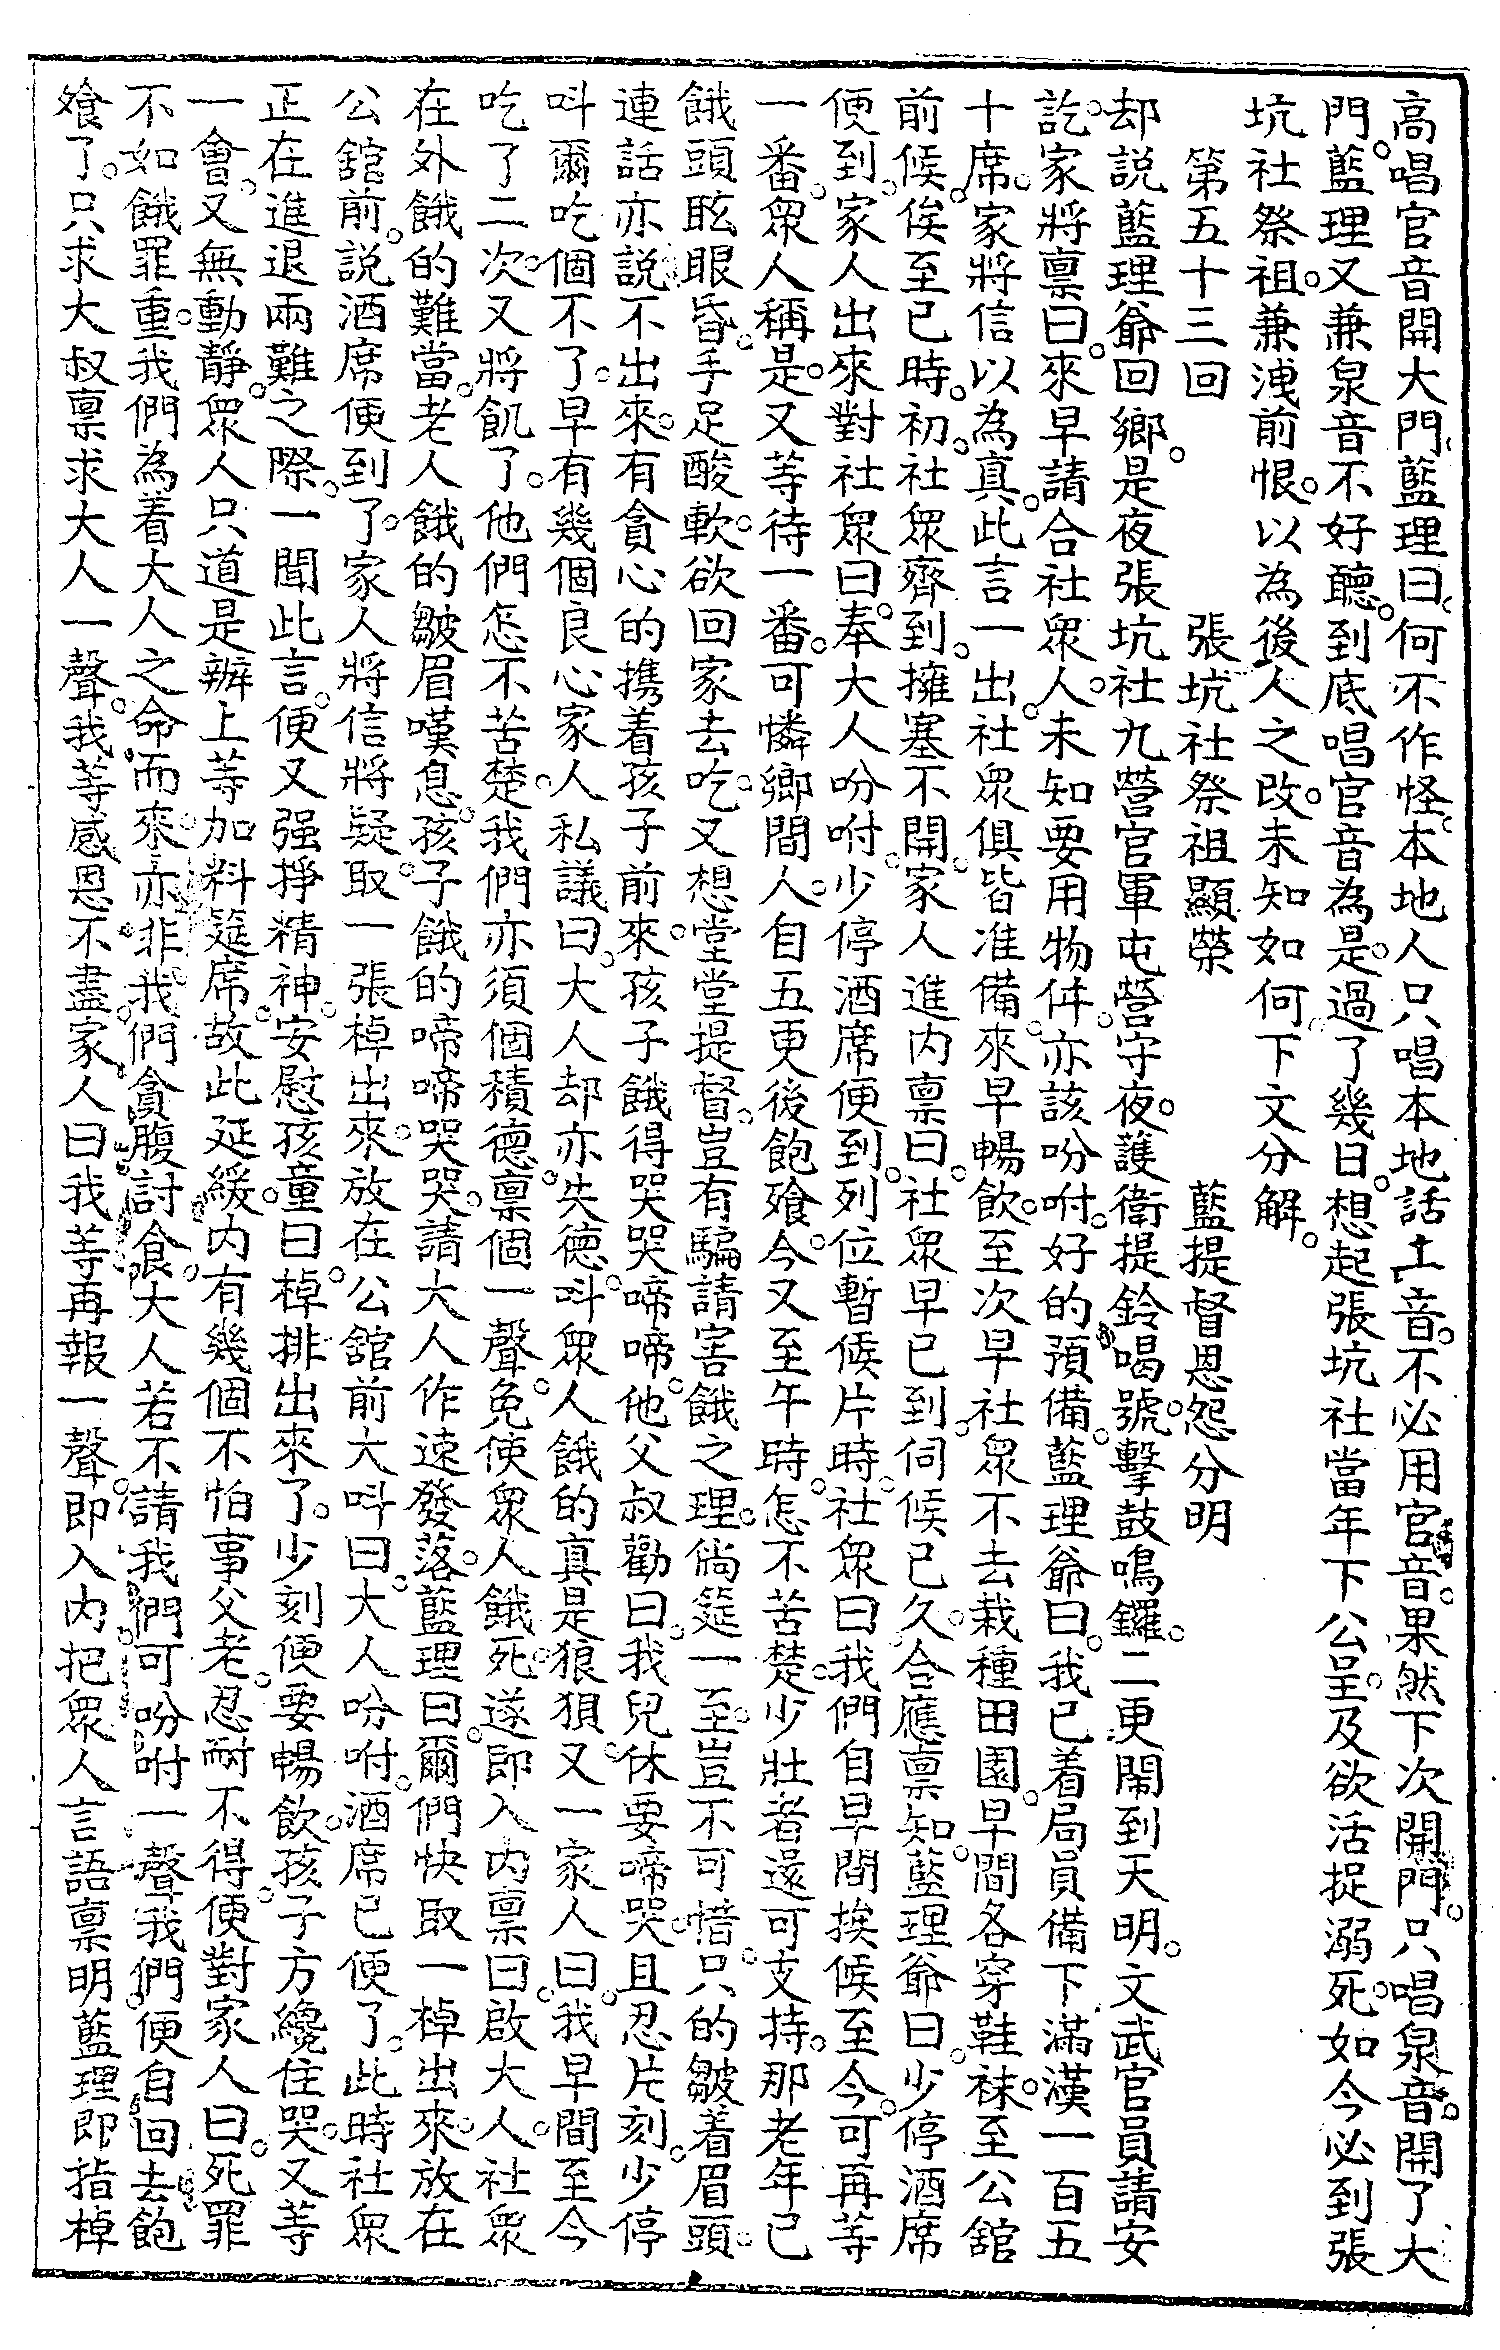 高唱官音開大門藍理曰何不作怪本地人只唱本地話土音。不必用官音。果然下次開門。只唱泉音。開了大
門。藍理又兼泉音不好聽。到底唱官音為是。過了幾日。想起張坑社當年下公呈。及欲活捉溺死。如今必到張
坑社祭祖。兼洩前恨。以為後人之改。未知如何下文分解。
第五十三回　張坑社祭祖顯榮　藍提督恩怨分明
却説藍理爺回鄉。是夜張坑社九營官軍屯營守夜。護衛提鈴喝號。擊鼓鳴鑼。二更鬧到天明。文武官員請安
訖。家將禀曰。來早請合社衆人。未知要用物件。亦該吩咐。好的預備。藍理爺曰。我已着局員備下滿漢一百五
十席。家將信以為真。此言一出。社衆俱皆准備。來早暢飲。至次早社衆不去栽種田園。早間各穿鞋袜。至公舘
前候。俟至巳時。初。社衆齊到。擁塞不開。家人進内禀曰。社衆早已到。伺候已久。合應禀知。藍理爺曰。少停酒席
便到。家人出來對社衆曰。奉大人吩咐。少停酒席便到。列位暫候片時。社衆曰我們自早間挨候至今。可再等
一番。衆人稱是。又等待一番。可憐鄉間人。自五更後飽飱。今又至午時。怎不苦楚。少壯者還可支持。那老年已
餓頭眩眼昏。手足酸軟。欲回家去吃。又想堂堂提督。豈有騙請害餓之理。倘筵一至。豈不可惜。只的皺着眉頭。
連話亦説不出來。有貪心的携着孩子前來。孩子餓得哭哭啼啼。他父叔勸曰。我兒休要啼哭。且忍片刻。少停
呌爾吃個不了。早有幾個良心家人私議曰。大人却亦失德。呌衆人餓的真是狼狽。又一家人曰。我早間至今
吃了二次。又將飢了。他們怎不苦楚。我們亦須個積德。禀個一聲。免使衆人餓死。遂即入内禀曰。啟大人。社衆
在外餓的難當。老人餓的皺眉嘆息。孩子餓的啼啼哭哭。請大人作速發落。藍理曰。爾們快取一棹出來。放在
公舘前。説酒席便到了。家人將信將疑。取一張棹出來。放在公舘前大呌曰。大人吩咐。酒席已便了。此時社衆
正在進退兩難之際。一聞此言。便又强掙精神。安慰孩童曰。棹排出來了。少刻便要暢飲。孩子方纔住哭。又等
一會。又無動靜。衆人只道是辦上等加料筵席。故此延緩。内有幾個不怕事父老。忍耐不得。便對家人曰。死罪
不如餓罪重。我們為着大人之命而來。亦非我們貪腹討食。大人若不請我們。可吩咐一聲。我們便自回去飽
飱了。只求大叔禀求大人一聲。我等感恩不盡。家人曰我等再報一聲。即入内把衆人言語禀明。藍理即指棹